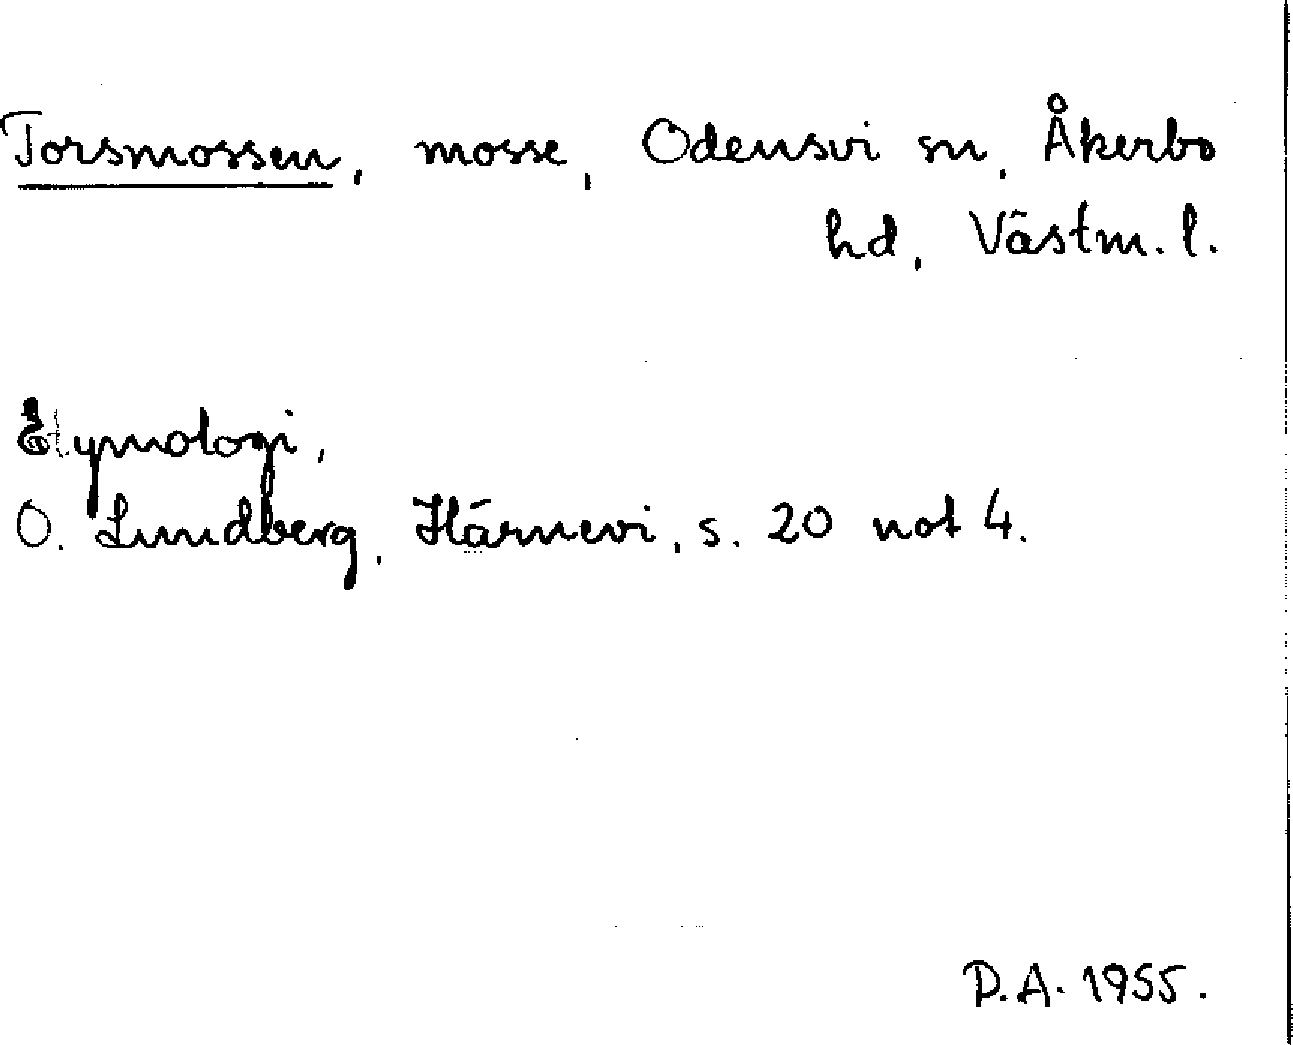 Torsmossen, mosse, Odensvi sn, Åkerbo
hd, Västm. l.
Etymologi,
O. Lundberg, Härnevi, s. 20 not 4.
P.A. 1955.